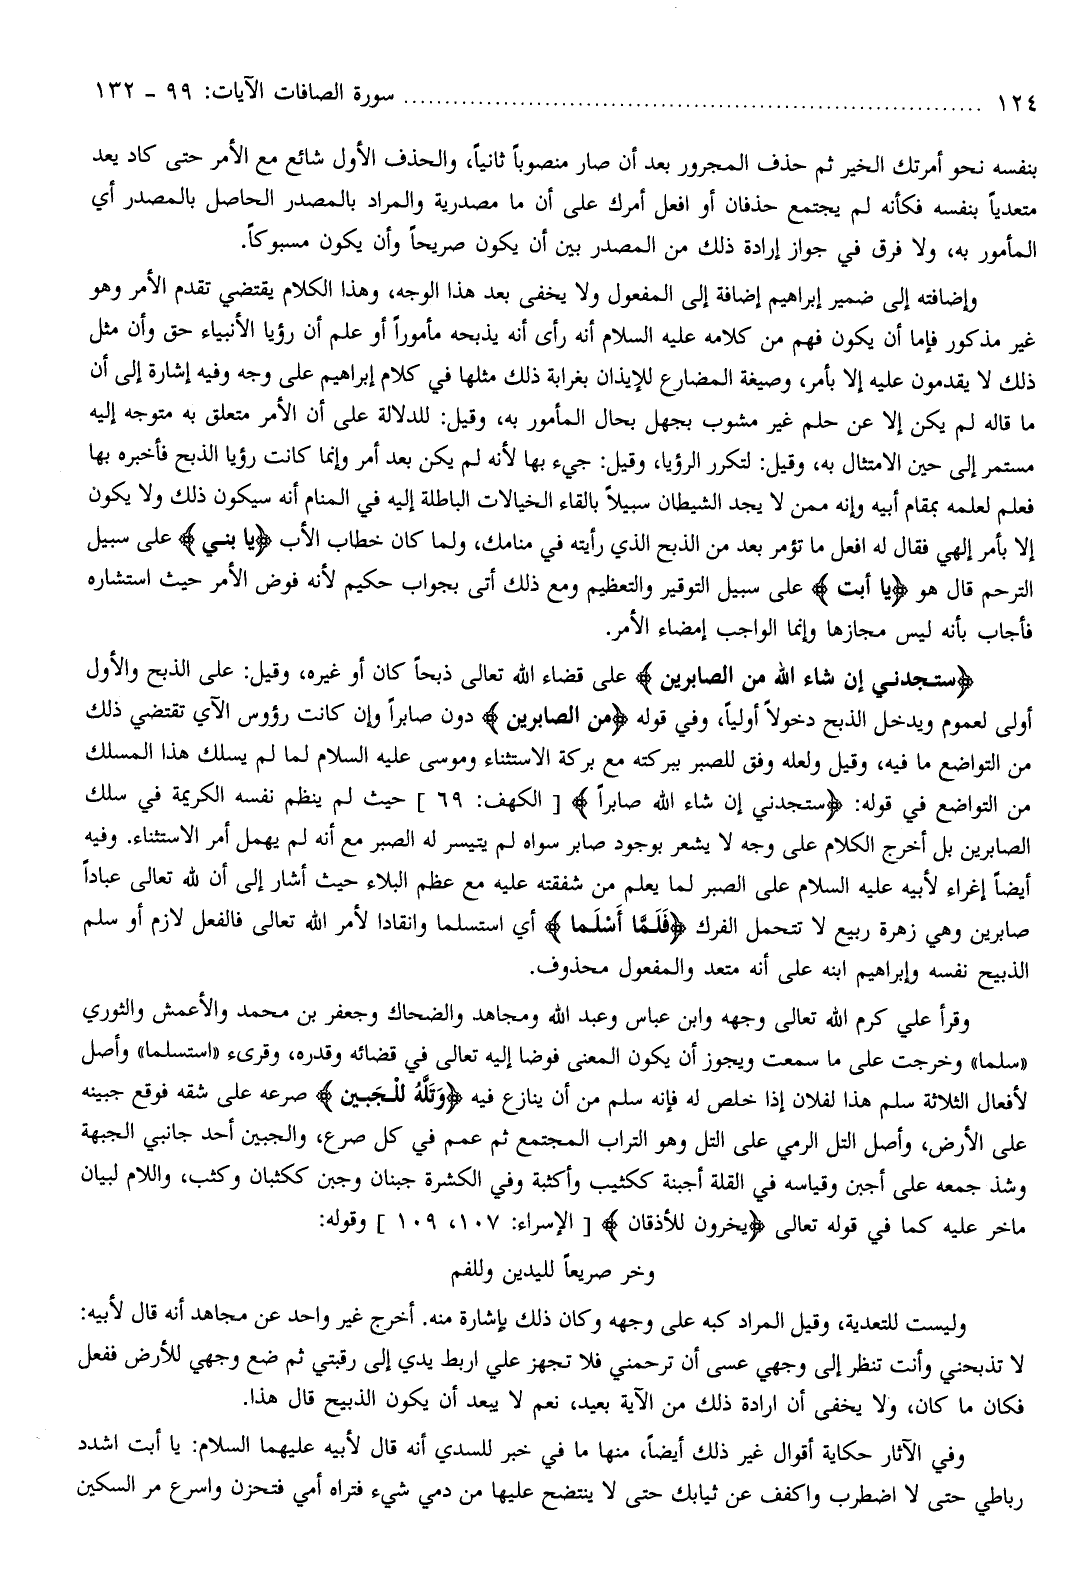 ١٢٤ ........................................ سورة الصافات الآيات: ٩٩ ـ ١٣٢
بنفسه نحو أمرتك الخير ثم حذف المجرور بعد أن صار منصوباً ثانياً، والحذف الأول شائع مع الأمر حتى كاد يعد
متعدياً بنفسه فكأنه لم يجتمع حذفان أو افعل أمرك على أن ما مصدرية والمراد بالمصدر الحاصل بالمصدر أي
المأمور به، ولا فرق في جواز إرادة ذلك من المصدر بين أن يكون صريحاً وأن يكون مسبوكاً.
وإضافته إلى ضمير إبراهيم إضافة إلى المفعول ولا يخفى بعد هذا الوجه، وهذا الكلام يقتضي تقدم الأمر وهو
غير مذكور فإما أن يكون فهم من كلامه عليه السلام أنه رأى أنه يذبحه مأموراً أو علم أن رؤيا الأنبياء حق وأن مثل
ذلك لا يقدمون عليه إلا بأمر، وصيغة المضارع للإيذان بغرابة ذلك مثلها في كلام إبراهيم على وجه وفيه إشارة إلى أن
ما قاله لم يكن إلا عن حلم غير مشوب بجهل بحال المأمور به، وقيل: للدلالة على أن الأمر متعلق به متوجه إليه
مستمر إلى حين الامتثال به، وقيل: لتكرر الرؤيا، وقيل: جيء بها لأنه لم يكن بعد أمر وإنما كانت رؤيا الذبح فأخبره بها
فعلم لعلمه بمقام أبيه وإنه ممن لا يجد الشيطان سبيلاً بالقاء الخيالات الباطلة إليه في المنام أنه سيكون ذلك ولا يكون
إلا بأمر إلهي فقال له افعل ما تؤمر بعد من الذبح الذي رأيته في منامك، ولما كان خطاب الأب ﴿يا بني﴾ على سبيل
الترحم قال هو ﴿يا أبت﴾ على سبيل التوقير والتعظيم ومع ذلك أتى بجواب حكيم لأنه فوض الأمر حيث استشاره
فأجاب بأنه ليس مجازها وإنما الواجب إمضاء الأمر.
﴿ستجدني إن شاء الله من الصابرين﴾ على قضاء الله تعالى ذبحاً كان أو غيره، وقيل: على الذبح والأول
أولى لعموم ويدخل الذبح دخولاً أولياً، وفي قوله ﴿من الصابرين﴾ دون صابراً وإن كانت رؤوس الآي تقتضي ذلك
من التواضع ما فيه، وقيل ولعله وفق للصبر ببركته مع بركة الاستثناء وموسى عليه السلام لما لم يسلك هذا المسلك
من التواضع في قوله: ﴿ستجدني إن شاء الله صابراً﴾ [ الكهف: ٦٩ ] حيث لم ينظم نفسه الكريمة في سلك
الصابرين بل أخرج الكلام على وجه لا يشعر بوجود صابر سواه لم يتيسر له الصبر مع أنه لم يهمل أمر الاستثناء. وفيه
أيضاً إغراء لأبيه عليه السلام على الصبر لما يعلم من شفقته عليه مع عظم البلاء حيث أشار إلى أن لله تعالى عباداً
صابرين وهي زهرة ربيع لا تتحمل الفرك ﴿فَلَمَّا أَسْلَما﴾ أي استسلما وانقادا لأمر الله تعالى فالفعل لازم أو سلم
الذبيح نفسه وإبراهيم ابنه على أنه متعد والمفعول محذوف.
وقرأ علي كرم الله تعالى وجهه وابن عباس وعبد الله ومجاهد والضحاك وجعفر بن محمد والأعمش والثوري
«سلما» وخرجت على ما سمعت ويجوز أن يكون المعنى فوضا إليه تعالى في قضائه وقدره، وقرىء «استسلما» وأصل
لأفعال الثلاثة سلم هذا لفلان إذا خلص له فإنه سلم من أن ينازع فيه ﴿وَتَلَّهُ لِلْجَبين﴾ صرعه على شقه فوقع جبينه
على الأرض، وأصل التل الرمي على التل وهو التراب المجتمع ثم عمم في كل صرع، والجبين أحد جانبي الجبهة
وشذ جمعه على أجبن وقياسه في القلة أجبنة ككثيب وأكثبة وفي الكشرة جبنان وجبن ككثبان وكثب، واللام لبيان
ماخر عليه كما في قوله تعالى ﴿يخرون للأذقان﴾ [ الإسراء: ١٠٧، ١٠٩ ] وقوله:
وخر صريعاً لليدين وللفم
وليست للتعدية، وقيل المراد كبه على وجهه وكان ذلك بإشارة منه. أخرج غير واحد عن مجاهد أنه قال لأبيه:
لا تذبحني وأنت تنظر إلى وجهي عسى أن ترحمني فلا تجهز علي اربط يدي إلى رقبتي ثم ضع وجهي للأرض ففعل
فكان ما كان، ولا يخفى أن ارادة ذلك من الآية بعيد، نعم لا يبعد أن يكون الذبيح قال هذا.
وفي الآثار حكاية أقوال غير ذلك أيضاً، منها ما في خبر للسدي أنه قال لأبيه عليهما السلام: يا أبت اشدد
رباطي حتى لا اضطرب واكفف عن ثيابك حتى لا ينتضح عليها من دمي شيء فتراه أمي فتحزن واسرع مر السكين